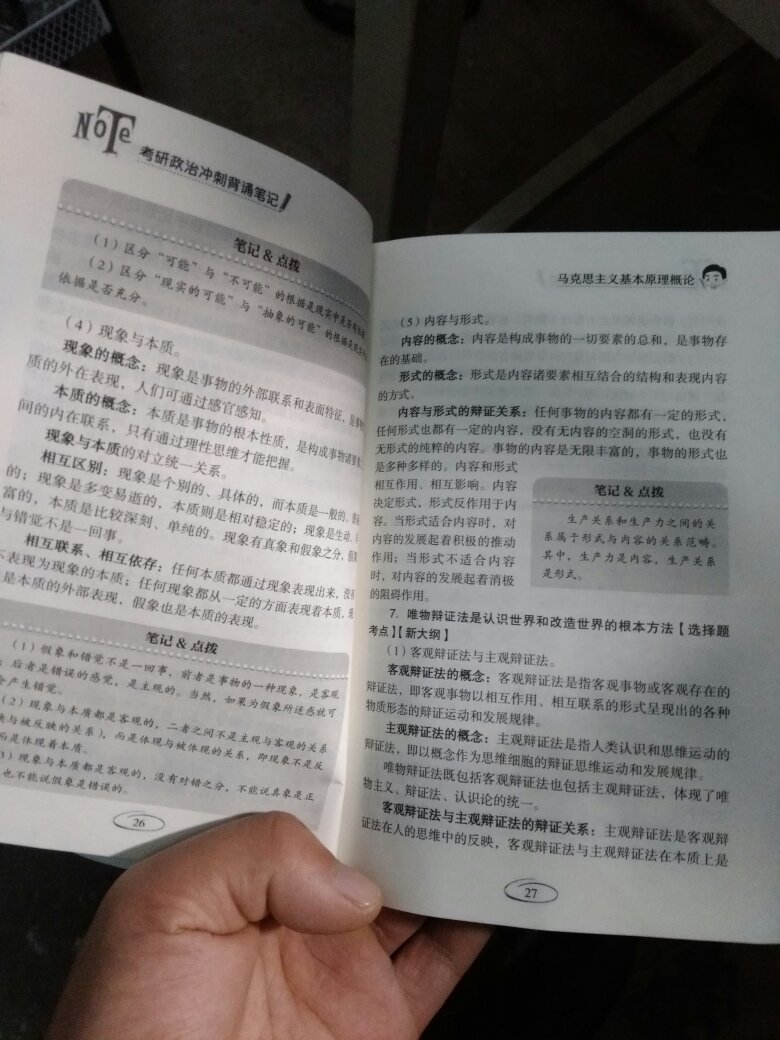 NoTe
考研政治冲刺背诵笔记
笔记 & 点拨
（1）区分“可能”与“不可能”的根据是现实中是否有
（2）区分“现实的可能”与“抽象的可能”的根据是现实
依据是否充分。
（4）现象与本质。
现象的概念：现象是事物的外部联系和表面特征，是事
质的外在表现，人们可通过感官感知。
本质的概念：本质是事物的根本性质，是构成事物诸要
间的内在联系，只有通过理性思维才能把握。
现象与本质的对立统一关系。
相互区别：现象是个别的、具体的，而本质是一般的、
的；现象是多变易逝的，本质则是相对稳定的；现象是生动、
富的，本质是比较深刻、单纯的。现象有真象和假象之分，假
与错觉不是一回事。
相互联系、相互依存：任何本质都通过现象表现出来，没有
不表现为现象的本质；任何现象都从一定的方面表现着本质，现
是本质的外部表现，假象也是本质的表现。
笔记 & 点拨
（1）假象和错觉不是一回事，前者是事物的一种现象，是客观
；后者是错误的感觉，是主观的。当然，如果为假象所迷惑就可
会产生错觉。
（2）现象与本质都是客观的，二者之间不是主观与客观的关系
映与被反映的关系），而是体现与被体现的关系，即现象不是反
而是体现着本质。
3）现象与本质都是客观的，没有对错之分，不能说真象是正
也不能说假象是错误的。
26
马克思主义基本原理概论
（5）内容与形式。
内容的概念：内容是构成事物的一切要素的总和，是事物存
在的基础。
形式的概念：形式是内容诸要素相互结合的结构和表现内容
的方式。
内容与形式的辩证关系：任何事物的内容都有一定的形式，
任何形式也都有一定的内容，没有无内容的空洞的形式，也没有
无形式的纯粹的内容。事物的内容是无限丰富的，事物的形式也
是多种多样的。内容和形式
相互作用、相互影响。内容
决定形式，形式反作用于内
容。当形式适合内容时，对
内容的发展起着积极的推动
作用；当形式不适合内容
时，对内容的发展起着消极
的阻碍作用。
笔记 & 点拨
生产关系和生产力之间的关
系属于形式与内容的关系范畴。
其中，生产力是内容，生产关系
是形式。
7. 唯物辩证法是认识世界和改造世界的根本方法【选择题
考点】【新大纲】
（1）客观辩证法与主观辩证法。
客观辩证法的概念：客观辩证法是指客观事物或客观存在的
辩证法，即客观事物以相互作用、相互联系的形式呈现出的各种
物质形态的辩证运动和发展规律。
主观辩证法的概念：主观辩证法是指人类认识和思维运动的
辩证法，即以概念作为思维细胞的辩证思维运动和发展规律。
唯物辩证法既包括客观辩证法也包括主观辩证法，体现了唯
物主义、辩证法、认识论的统一。
客观辩证法与主观辩证法的辩证关系：主观辩证法是客观辩
证法在人的思维中的反映，客观辩证法与主观辩证法在本质上是
27